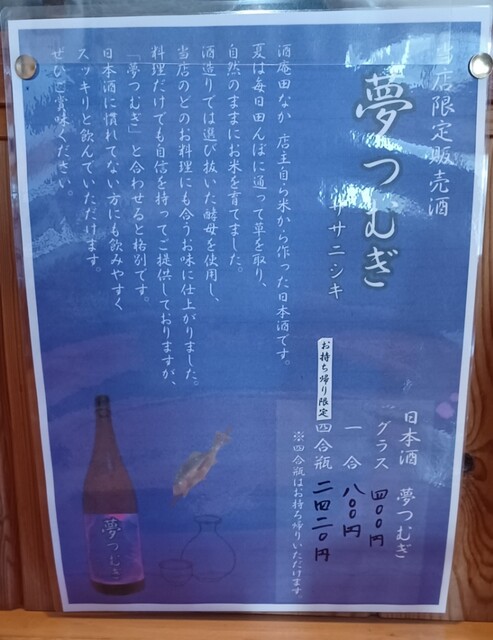 当店限定販売酒
夢つむぎ
ササニシキ
酒庵田なか 店主自ら米から作った日本酒です。
夏は毎日田んぼに通って草を取り、
自然のままにお米を育てました。
酒造りでは選び抜いた酵母を使用し、
当店のどのお料理にも合うお味に仕上がりました。
料理だけでも自信を持ってご提供しておりますが、
「夢つむぎ」と合わせると格別です。
日本酒に慣れてない方にも飲みやすく
スッキリと飲んでいただけます。
ぜひご賞味ください。
日本酒 夢つむぎ
グラス 四〇〇円
一合 八〇〇円
お持ち帰り限定 四合瓶 二四二〇円
※四合瓶はお持ち帰りいただけます
夢つむぎ